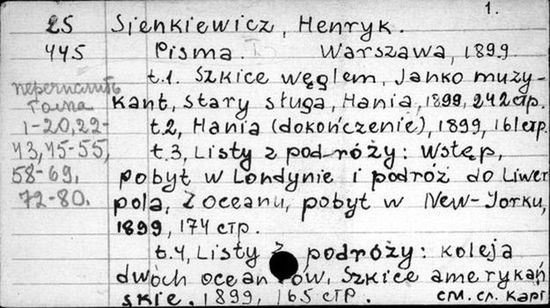 1.
25 Sienkiewicz, Henryk.
445 Pisma. Warszawa, 1899
t.1. Szkice węglem, Janko muzy-
kant, stary sługa, Hania, 1899, 242 стр.
1-20, 22- t.2, Hania (dokończenie), 1899, 161 стр.
43, 45-55, t.3, Listy z podróży: Wstęp,
58-69, pobyt w Londynie i podróż do Liwer
72-80. pola, Z Oceanu, pobyt w New-Yorku,
1899, 174 стр.
t.4, Listy z podróży: koleja
dwóch oceanów, Szkice amerykań
skie. 1899, 165 стр. см. сл. карт